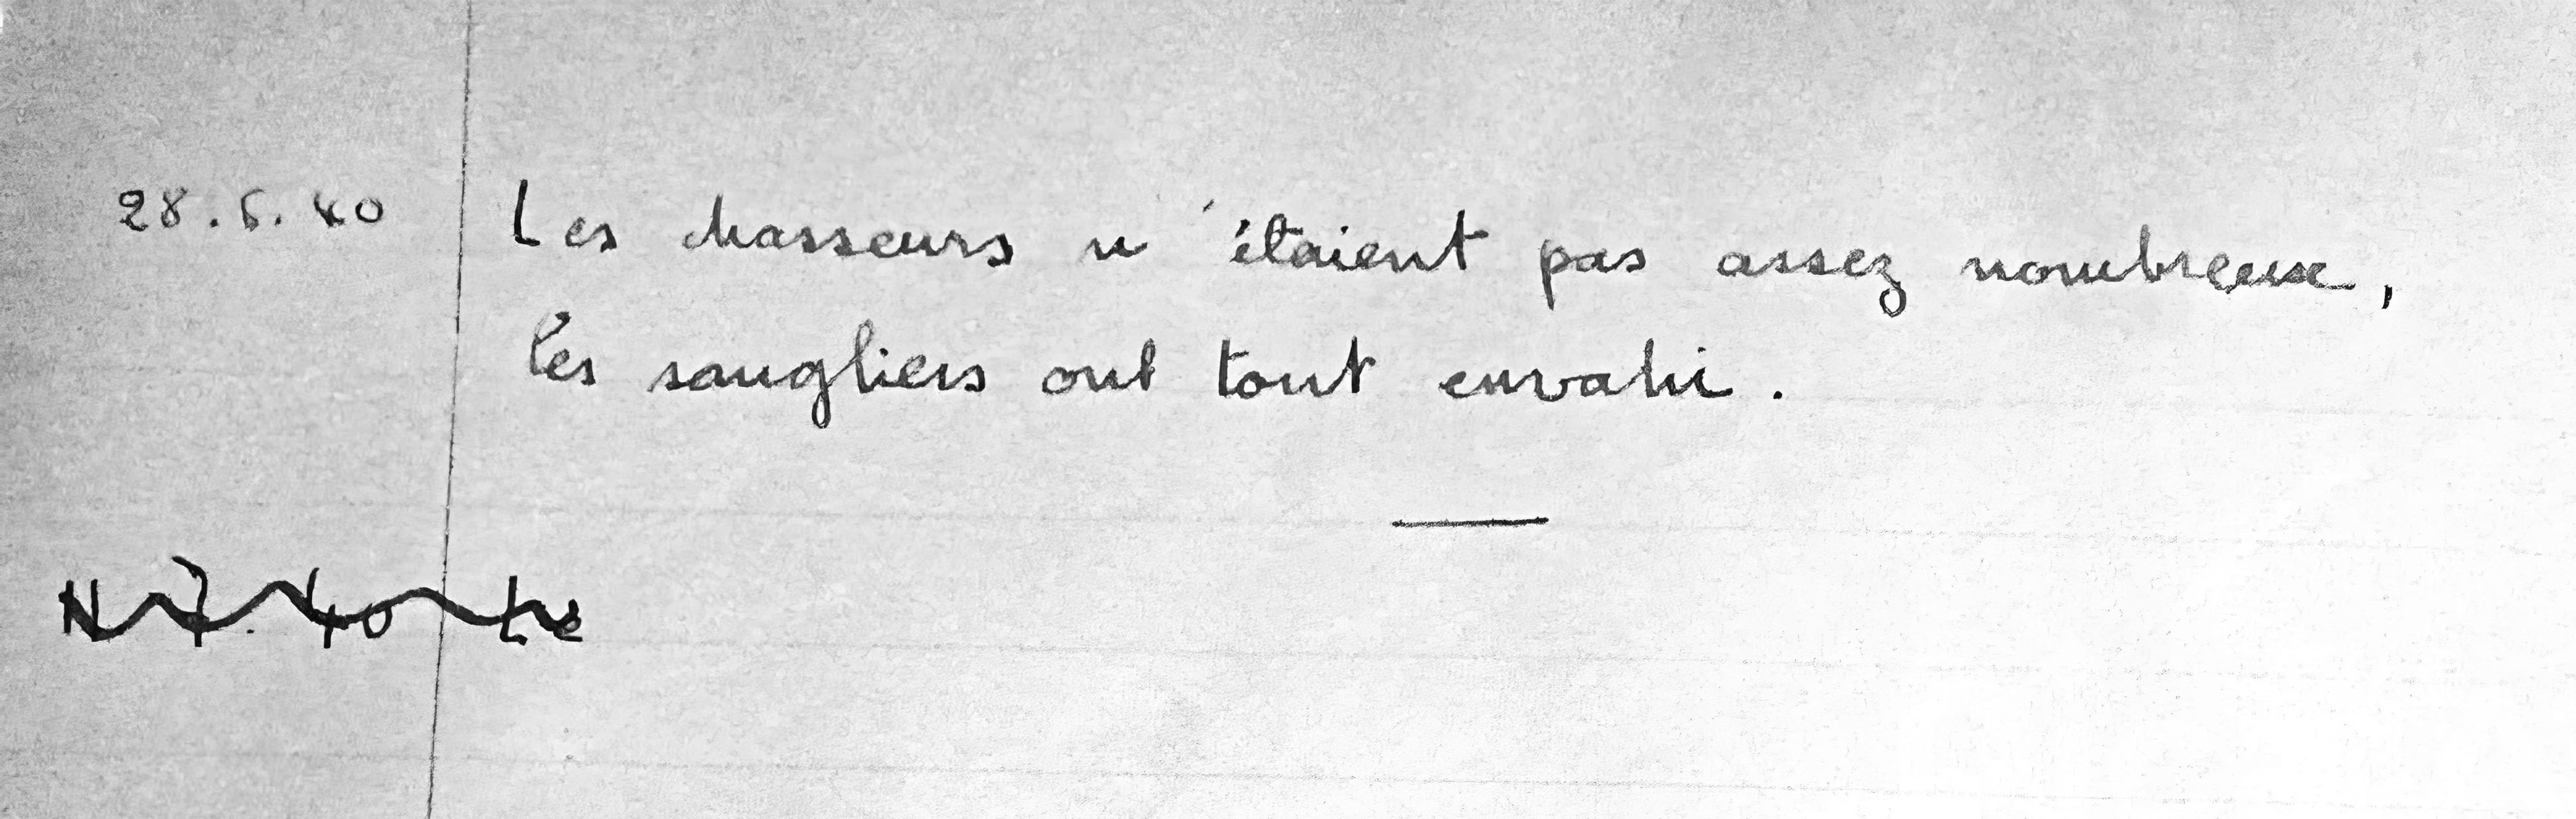 28.6.40 Les chasseurs n'étaient pas assez nombreux,
les sangliers ont tout envahi.